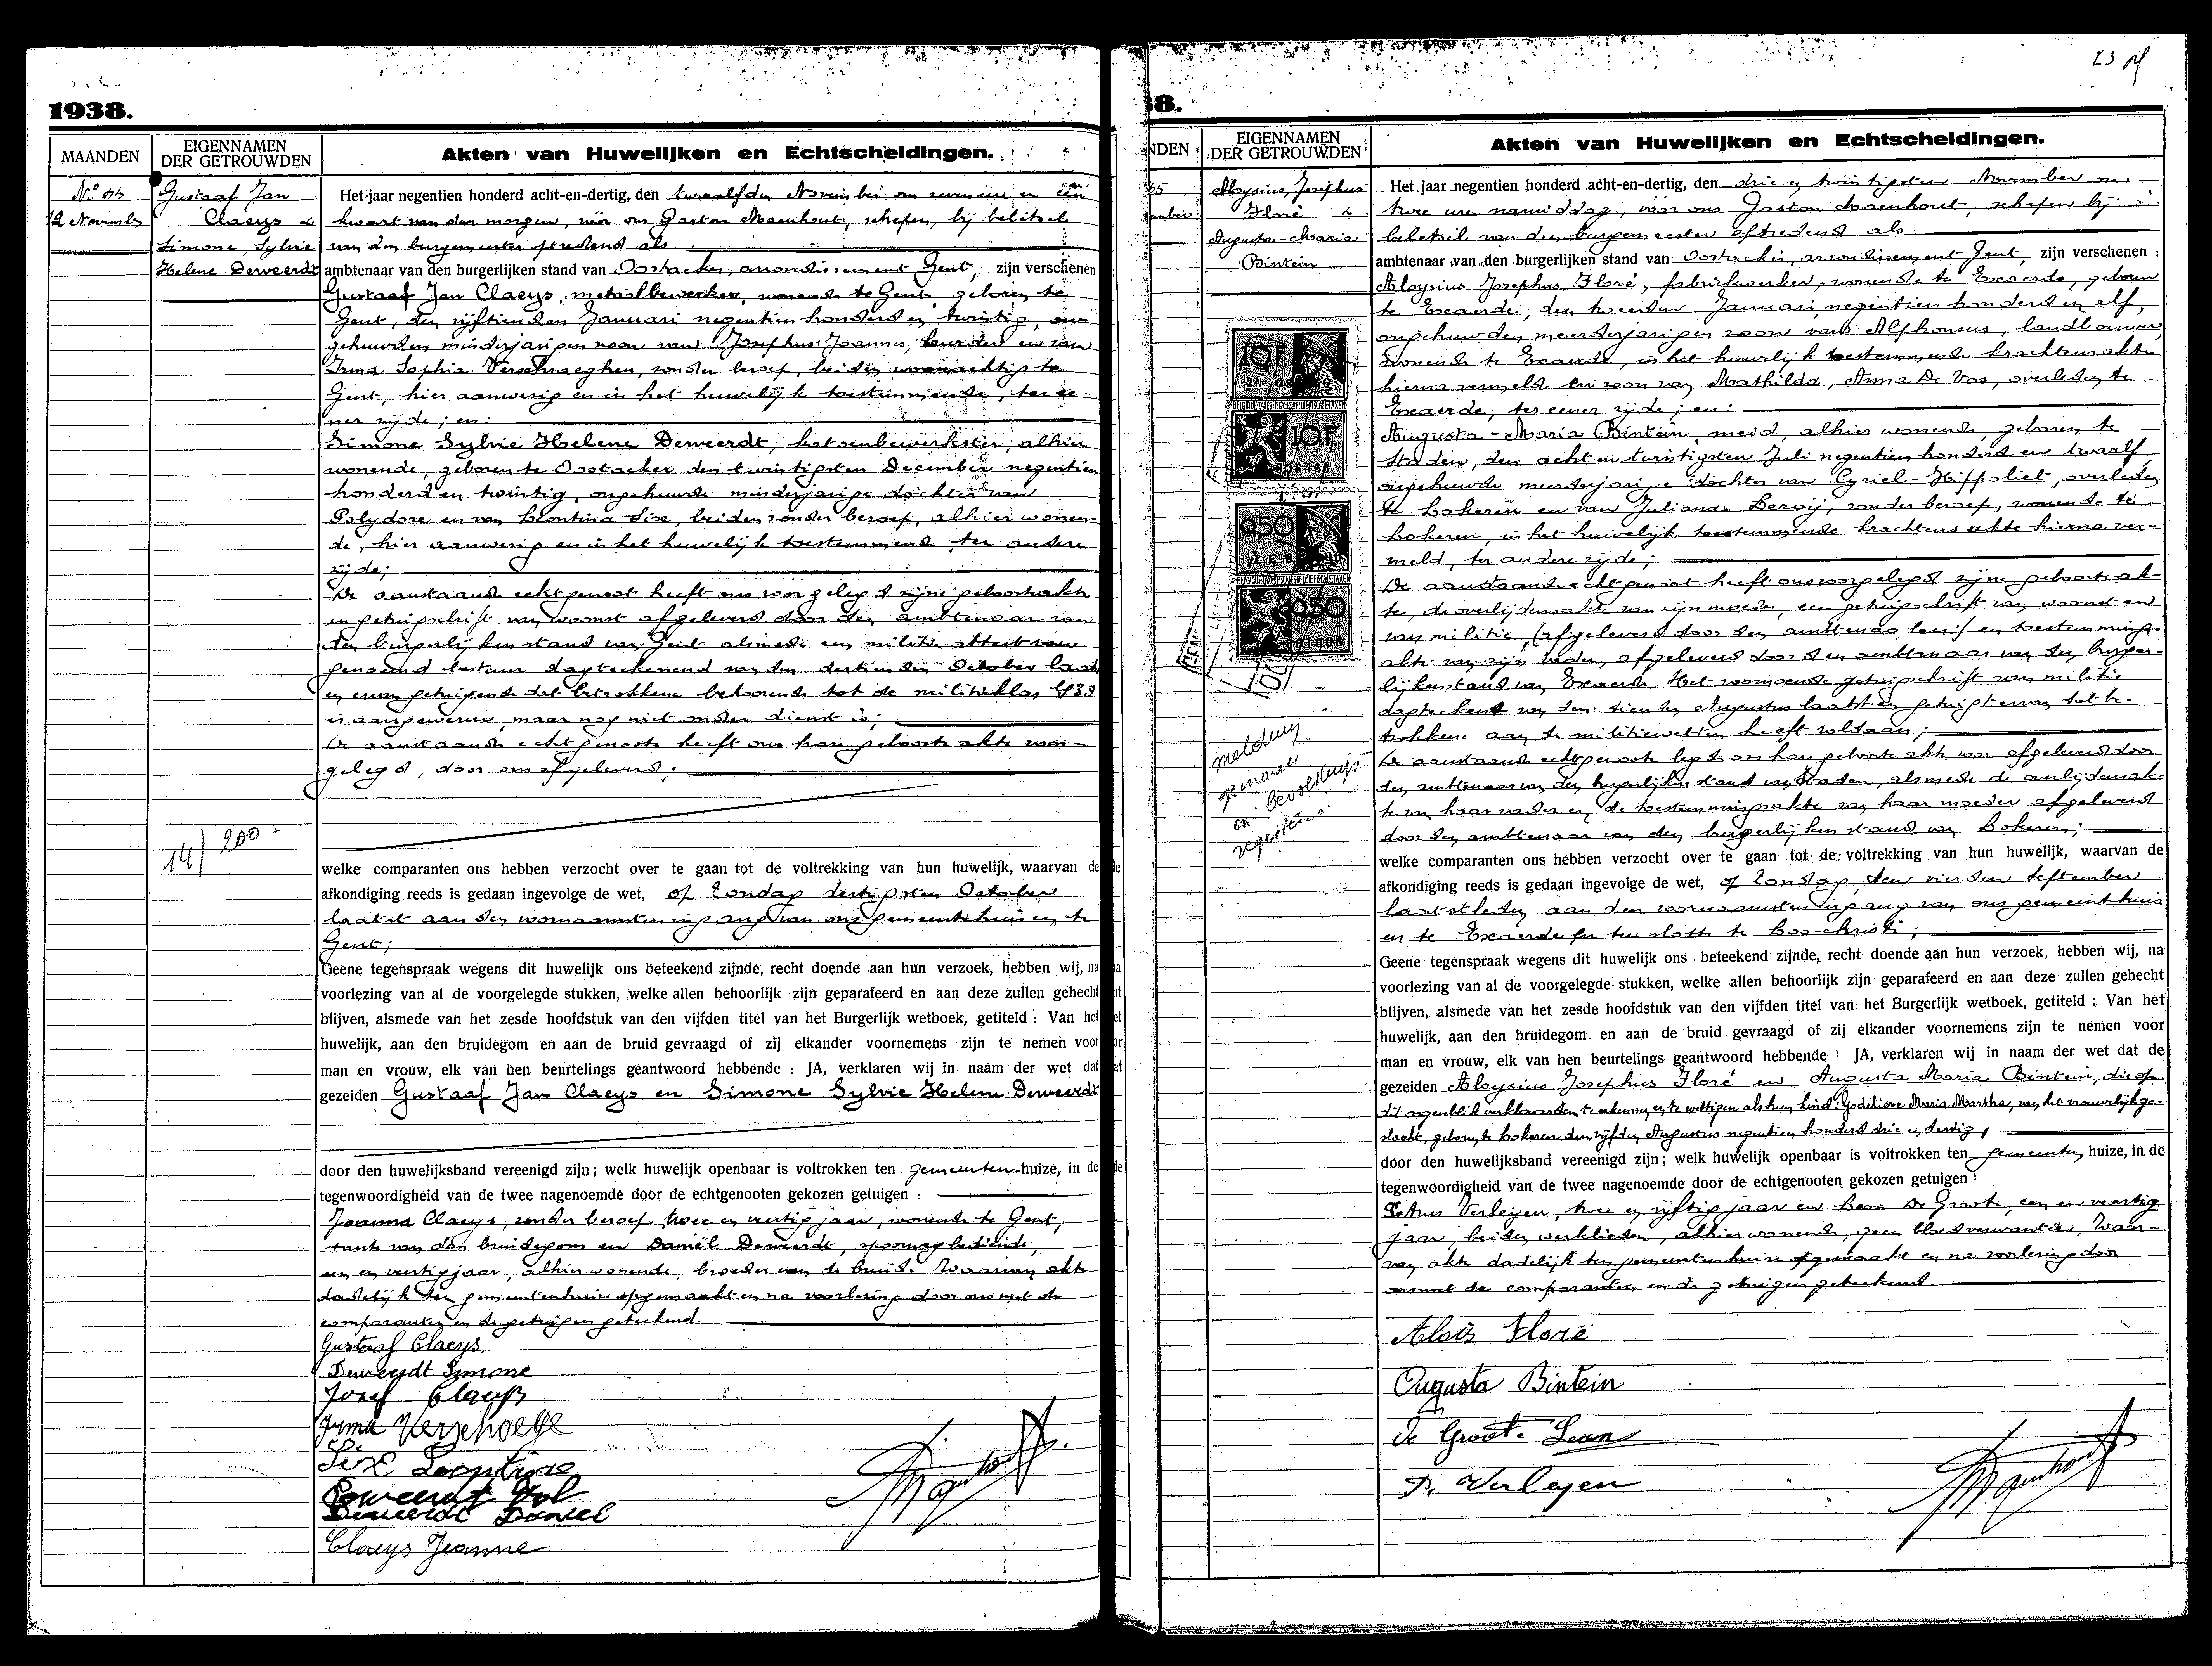 1938.
MAANDEN
EIGENNAMEN
DER GETROUWDEN
Akten van Huwelijken en Echtscheidingen.
12 November
Gustaaf Jan
Claeys &
Simone, Sylvie
Helene Deweerdt
14/200
Het jaar negentien honderd acht-en-dertig, den twaalfden November om een
kwart van den morgen, vóór ons Gaston Maenhout, schepen, bij beletsel
van den burgemeester optredend als
ambtenaar van den burgerlijken stand van Oostacker, arrondissement Gent, zijn verschenen
Gustaaf Jan Claeys, metaalbewerker, wonende te Gent, geboren te
Gent, den vijftienden Januari negentien honderd en twintig, on-
gehuwden minderjarigen zoon van Josephus Joannes, en van
Irma Sophia Verschraeghen, zonder beroep, beiden woonachtig te
Gent, hier aanwezig en in het huwelijk toestemmende, ter ee-
ner zijde; en:
Simone Sylvie Helene Deweerdt, katoenbewerkster, alhier
wonende, geboren te Oostacker den twintigsten December negentien
honderd en twintig, ongehuwde minderjarige dochter van
Polydore en van Leontina Sixe, beiden zonder beroep, alhier wonen-
de, hier aanwezig en in het huwelijk toestemmende ter andere
zijde;
De aanstaande echtgenoot heeft ons voorgelegd zijne geboorteakte
en getuigschrift van woonst afgeleverd door den ambtenaar van
den burgerlijken stand van Gent alsmede een militie attest van
genoemd bestuur dagteekenend van den dertienden October laatst
en ervan getuigende dat betrokkene behoorende tot de militieklas 1939
is aangewezen, maar nog niet onder dienst is;
De aanstaande echtgenoote heeft ons haar geboorte akte voor-
gelegd, door ons afgeleverd;
welke comparanten ons hebben verzocht over te gaan tot de voltrekking van hun huwelijk, waarvan de
afkondiging reeds is gedaan ingevolge de wet, op Zondag dertigsten October
laatst aan den voornaamsten ingang van ons gemeentehuis en te
Gent;
Geene tegenspraak wegens dit huwelijk ons beteekend zijnde, recht doende aan hun verzoek, hebben wij, na
voorlezing van al de voorgelegde stukken, welke allen behoorlijk zijn geparafeerd en aan deze zullen gehecht
blijven, alsmede van het zesde hoofdstuk van den vijfden titel van het Burgerlijk wetboek, getiteld : Van het
huwelijk, aan den bruidegom en aan de bruid gevraagd of zij elkander voornemens zijn te nemen voor
man en vrouw, elk van hen beurtelings geantwoord hebbende : JA, verklaren wij in naam der wet dat
gezeiden Gustaaf Jan Claeys en Simone Sylvie Helene Deweerdt
door den huwelijksband vereenigd zijn; welk huwelijk openbaar is voltrokken ten gemeenten huize, in de
tegenwoordigheid van de twee nagenoemde door de echtgenooten gekozen getuigen :
Joanna Claeys, zonder beroep twee en veertig jaar, wonende te Gent,
tante van den bruidegom en Daniël Deweerdt, spoorwegbediende,
een en veertig jaar, alhier wonende, broeder van de bruid. Waarvan akte
dadelijk ten gemeentenhuize opgemaakt en na voorlezing door ons met de
comparanten en de getuigen geteekend.
Gustaaf Claeys
Deweerdt Simone
Jozef Claeys
Irma Verschoege
Sixe Leontine
Deweerdt Pol
Deweerdt Daniel
Claeys Jeanne
Maenhout
38.
NDEN
EIGENNAMEN
DER GETROUWDEN
Akten van Huwelijken en Echtscheidingen.
Aloysius, Josephus
Floré &
Augusta-Maria
Bintein
10F
10F
0.50
0.50
melding
gemeente
en bevolkings
registers
Het jaar negentien honderd acht-en-dertig, den drie en twintigsten November om
twee ure namiddag, vóór ons Gaston Maenhout, schepen bij
beletsel van den burgemeester optredend als
ambtenaar van den burgerlijken stand van Oostacker, arrondissement Gent, zijn verschenen :
Aloysius Josephus Floré, fabriekwerker, wonende te Exaerde, geboren
te Exaerde, den tweeden Januari negentien honderd en elf,
ongehuwden meerderjarigen zoon van Alfhonsus, landbouwer,
wonende te Exaerde, in het huwelijk toestemmende krachtens akte
hierna vermeld en zoon van Mathilda, Anna De Vos, overleden te
Exaerde, ter eener zijde; en:
Augusta-Maria Bintein, meid, alhier wonende, geboren te
Staden, den acht en twintigsten Juli negentien honderd en twaalf,
ongehuwde meerderjarige dochter van Cyriel-Hippoliet, overleden
te Lokeren en van Juliana Leroij, zonder beroep, wonende te
Lokeren, in het huwelijk toestemmende krachtens akte hierna ver-
meld, ter andere zijde;
De aanstaande echtgenoot heeft ons voorgelegd zijne geboorteak-
te, de overlijdensakte van zijn moeder, een getuigschrift van woonst en
van militie, (afgeleverd door den ambtenaar) en toestemmings-
akte van zijn vader, afgeleverd door den ambtenaar van den burger-
lijkenstand van Exaerde. Het voornoemde getuigschrift van militie
dagteekent van den tienden Augustus laatst en getuigt ervan dat be-
trokkene aan de militiewetten heeft voldaan;
De aanstaande echtgenoote legt ons haar geboorte akte voor afgeleverd door
den ambtenaar van den burgerlijken stand van Staden, alsmede de overlijdensak-
te van haar vader en de toestemmingsakte van haar moeder afgeleverd
door den ambtenaar van den burgerlijken stand van Lokeren;
welke comparanten ons hebben verzocht over te gaan tot de voltrekking van hun huwelijk, waarvan de
afkondiging reeds is gedaan ingevolge de wet, op Zondag, den vierden September
laatstleden aan den voornaamsten ingang van ons gemeentehuis
en te Exaerde en ten slotte te Loo-christi;
Geene tegenspraak wegens dit huwelijk ons beteekend zijnde, recht doende aan hun verzoek, hebben wij, na
voorlezing van al de voorgelegde stukken, welke allen behoorlijk zijn geparafeerd en aan deze zullen gehecht
blijven, alsmede van het zesde hoofdstuk van den vijfden titel van het Burgerlijk wetboek, getiteld : Van het
huwelijk, aan den bruidegom en aan de bruid gevraagd of zij elkander voornemens zijn te nemen voor
man en vrouw, elk van hen beurtelings geantwoord hebbende : JA, verklaren wij in naam der wet dat de
gezeiden Aloysius Josephus Floré en Augusta Maria Bintein, die op
dit oogenblik verklaarden te erkennen en te wettigen als hun kind: Godelieve Maria Martha, van het vrouwelijk ge-
slacht, geboren te Lokeren den vijfden Augustus negentien honderd drie en dertig,
door den huwelijksband vereenigd zijn; welk huwelijk openbaar is voltrokken ten gemeenten huize, in de
tegenwoordigheid van de twee nagenoemde door de echtgenooten gekozen getuigen :
Petrus Verleyen, twee en vijftig jaar en Leon De Groote, een en veertig
jaar, beiden werklieden, alhier wonende, geen bloedverwanten, Waar-
van akte dadelijk ten gemeentenhuize opgemaakt en na voorlezing door
ons met de comparanten en de getuigen geteekend.
Aloïs Floré
Augusta Bintein
De Groote Leon
P. Verleyen
Maenhout